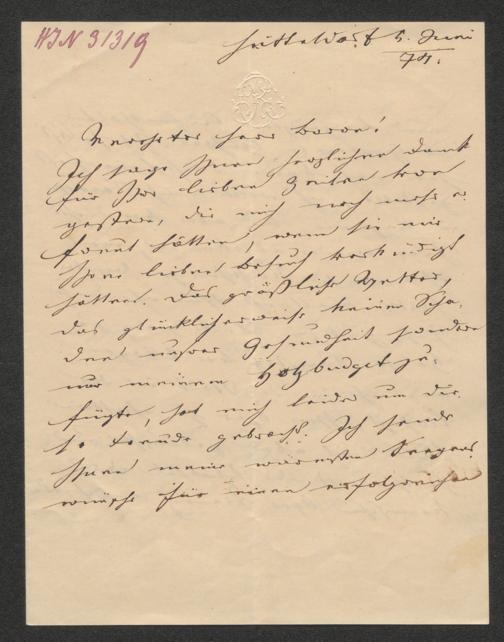 HIN 91319
Hütteldorf 5. Juni
74.
Verehrter Herr Baron!
Ich sage Ihnen herzlichen Dank
für Ihre lieben Zeilen von
gestern, die mich noch mehr er
freut hätten, wenn sie mir
Ihren lieben Besuch verkündigt
hätten. Das gräßliche Wetter,
das glücklicherweise keinen Scha-
den unserer Gesundheit sondern
nur meinem Holzbudget zu-
fügte, hat mich leider um die
se Freude gebracht. Ich sende
Ihnen meine wärmsten Segens
wünsche für einen erfolgreichen